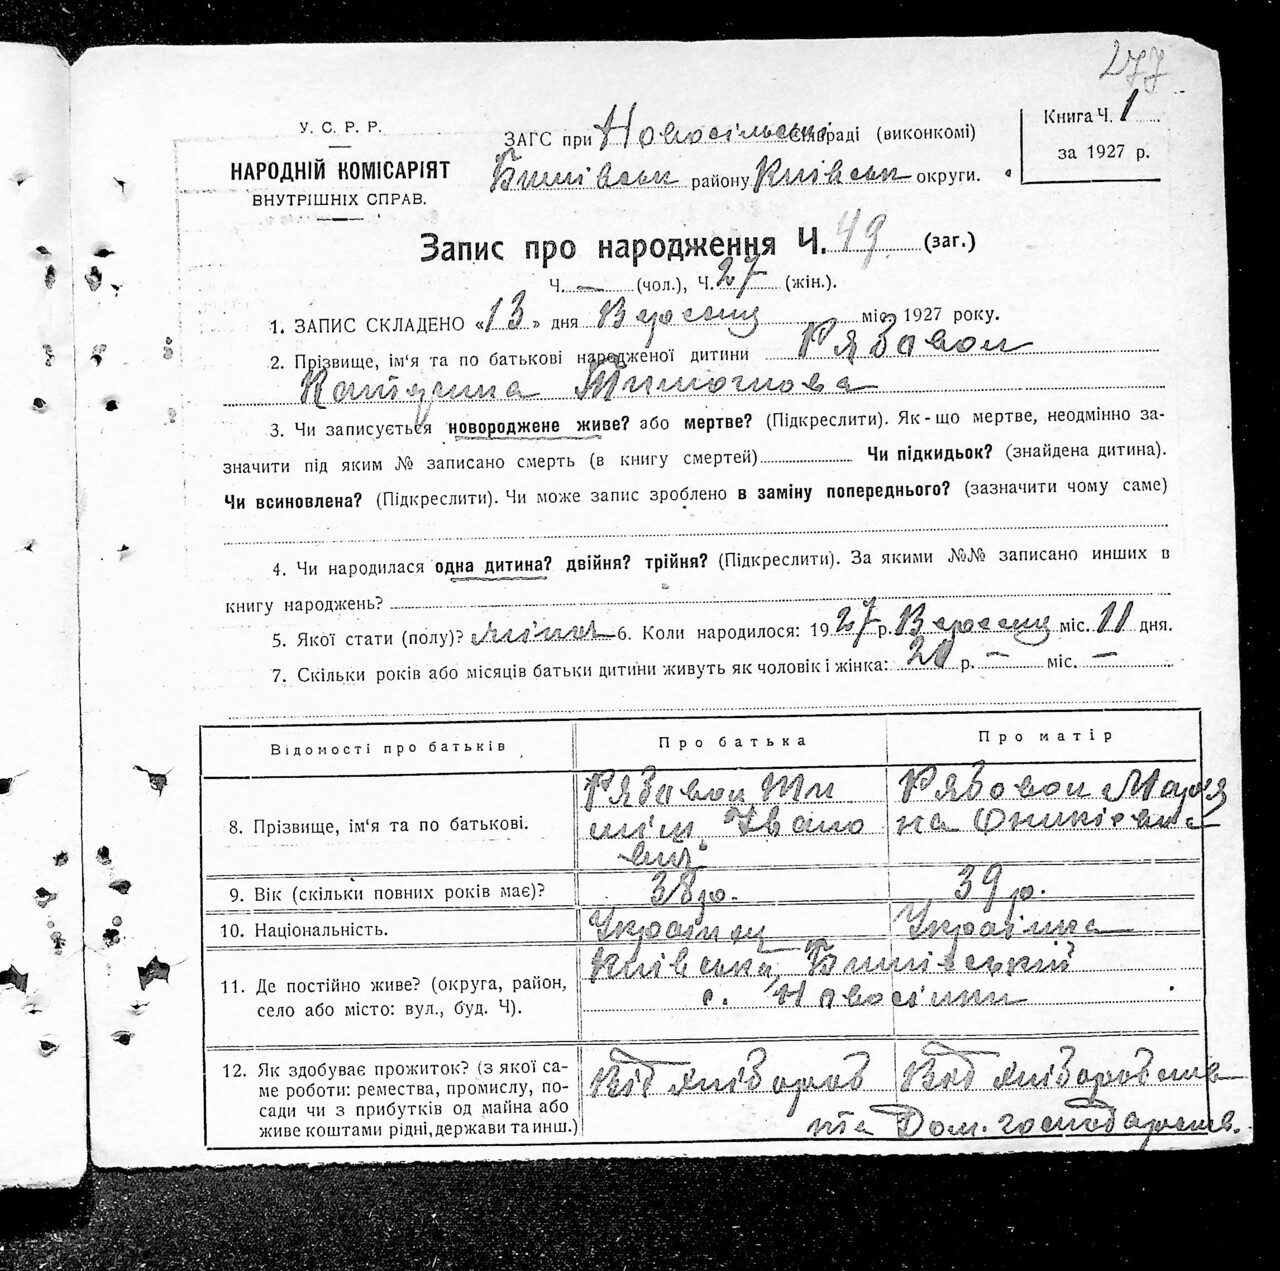 277
У. С. Р. Р.
НАРОДНІЙ КОМІСАРІЯТ
ВНУТРІШНІХ СПРАВ.
ЗАГС при Новосільській сільраді (виконкомі)
Бишівськ району Київськ округи.
Книга Ч. 1
за 1927 р.
Запис про народження Ч. 49 (заг.)
Ч. — (чол.), Ч. 27 (жін.).
1. ЗАПИС СКЛАДЕНО «13» дня Вересня міс. 1927 року.
2. Прізвище, ім'я та по батькові народженої дитини Рябовол
Катерина Тимошова
3. Чи записується новороджене живе? або мертве? (Підкреслити). Як-що мертве, неодмінно за-
значити під яким № записано смерть (в книгу смертей) Чи підкидьок? (знайдена дитина).
Чи всиновлена? (Підкреслити). Чи може запис зроблено в заміну попереднього? (зазначити чому саме)
4. Чи народилася одна дитина? двійня? трійня? (Підкреслити). За якими №№ записано инших в
книгу народжень?
5. Якої стати (полу)? жіноч 6. Коли народилося: 1927 р. Вересня міс. 11 дня.
7. Скільки років або місяців батьки дитини живуть як чоловік і жінка: 20 р. — міс. —
Відомості про батьків Про батька Про матір
8. Прізвище, ім'я та по батькові.
Рябовол Ти
міш Івано
вич
Рябовол Мар'я
на Оникієвна
9. Вік (скільки повних років має)? 38 р. 39 р.
10. Національність. Українец Українка
11. Де постійно живе? (округа, район,
село або місто: вул., буд. Ч).
Київська, Бишівський
с. Новосілки
12. Як здобуває прожиток? (з якої са-
ме роботи: ремества, промислу, по-
сади чи з прибутків од майна або
живе коштами рідні, держави та инш.)
Від хлібороб Від хліборобства
та Дом. господарств.